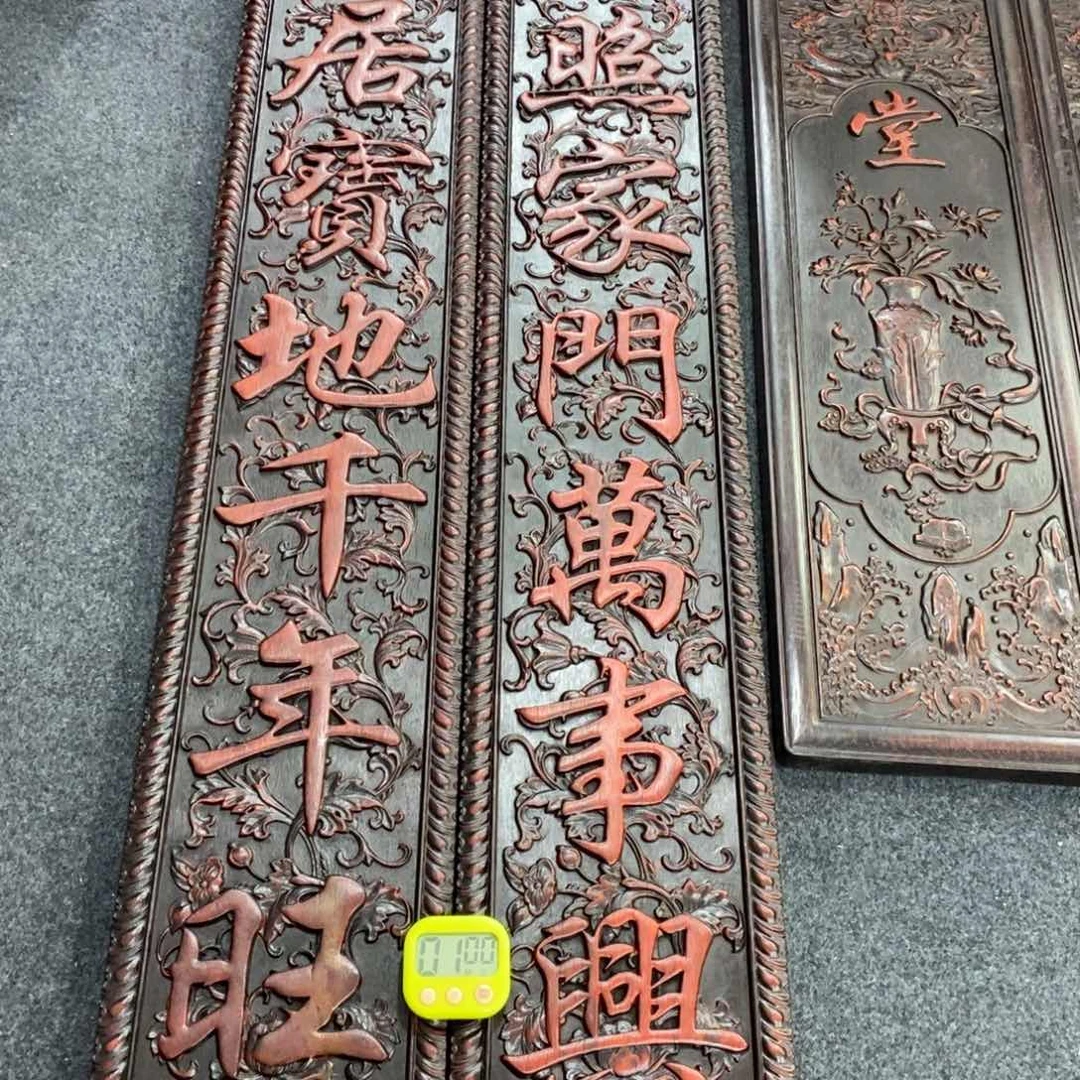 堂
照家門萬事興
居寶地千年旺
01 00